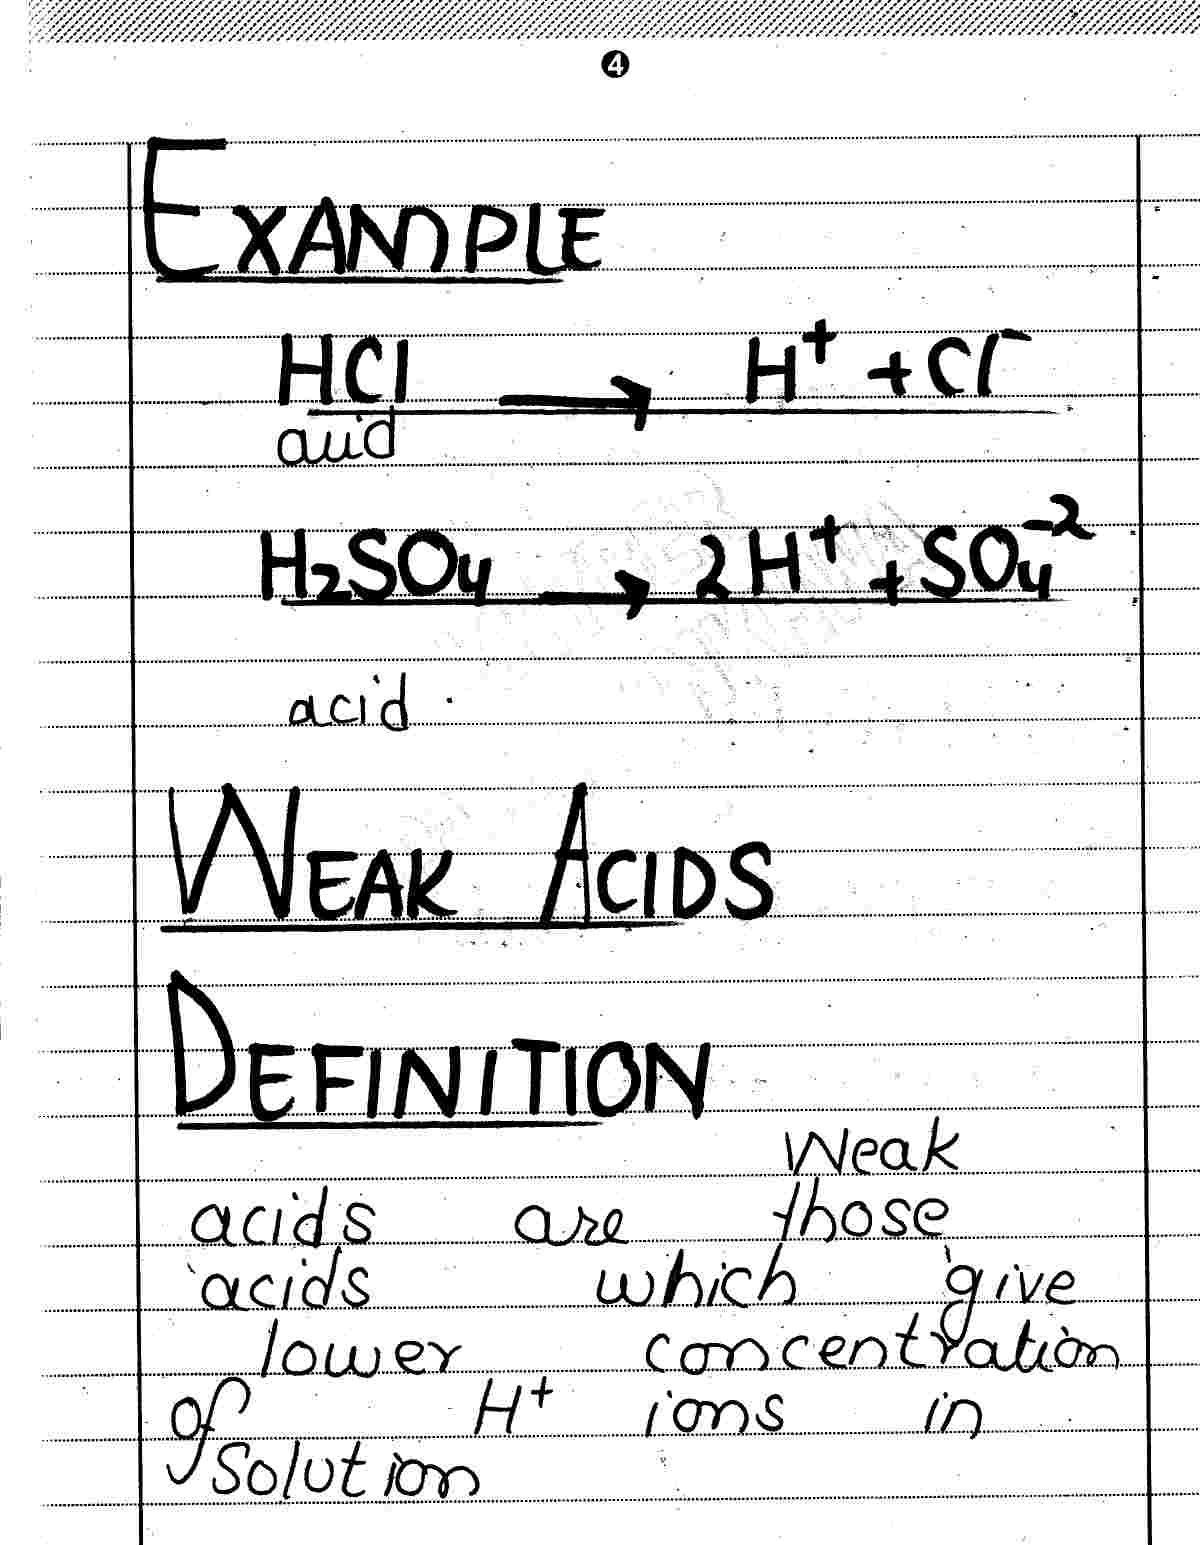 4
EXAMPLE
HCl → H⁺ + Cl⁻
acid
H₂SO₄ → 2H⁺ + SO₄⁻²
acid
WEAK ACIDS
DEFINITION
Weak
acids are those
acids which give
lower concentration
of H⁺ ions in
solution